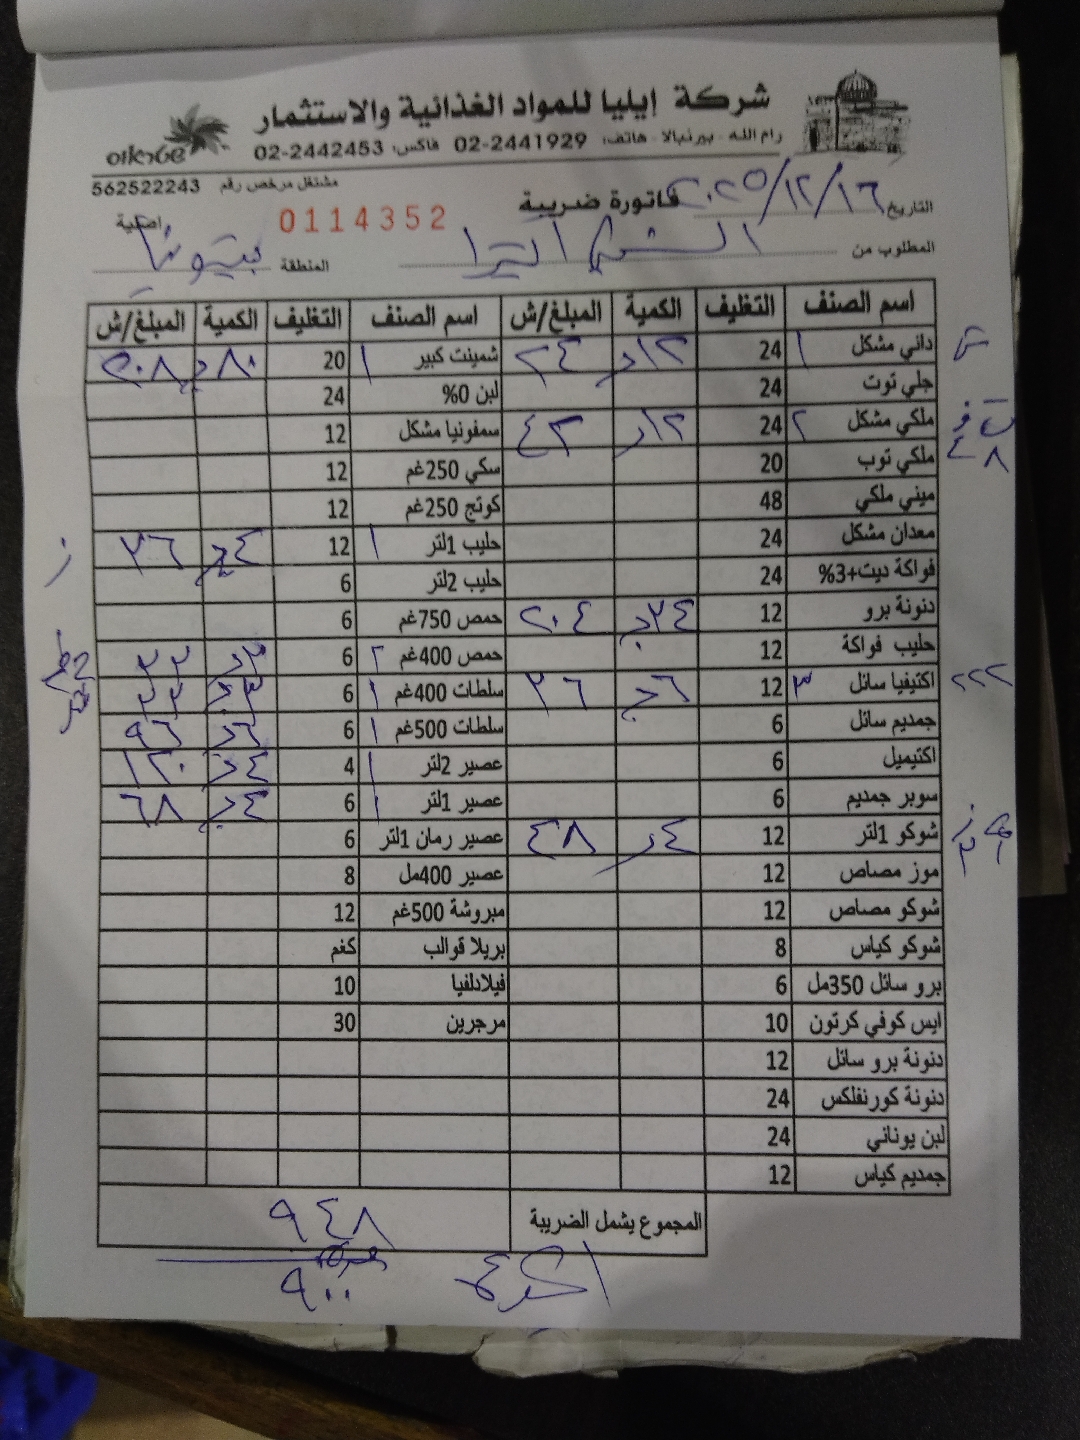 شركة إيليا للمواد الغذائية والاستثمار
رام الله - بيرنبالا - هاتف: 02-2441929 فاكس: 02-2442453
שטראוס
مشتغل مرخص رقم 562522243
التاريخ ٢٠٢٥/١٢/١٦ فاتورة ضريبة 0114352 اصلية
المطلوب من المنطقة بيتونيا
اسم الصنف التغليف الكمية المبلغ/ش اسم الصنف التغليف الكمية المبلغ/ش
داني مشكل ١ 24 ١٢ر ٢٤ شمينت كبير ١ 20
جلي توت 24 لبن 0% 24
ملكي مشكل ٢ 24 ١٢ر ٤٣ سمفونيا مشكل 12
ملكي توب 20 سكي 250غم 12
ميني ملكي 48 كوتج 250غم 12
معدان مشكل 24 حليب 1لتر ١ 12 ٣٦
فواكة ديت+3% 24 حليب 2لتر 6
دنونة برو 12 ٢٠٤ حمص 750غم 6
حليب فواكة 12 حمص 400غم ٢ 6 ٣٣
اكتيفيا سائل ٣ 12 ٣٦ سلطات 400غم ١ 6 ٣٣
جمديم سائل 6 سلطات 500غم ١ 6 ٩٦
اكتيميل 6 عصير 2لتر ١ 4 ١٢٠
سوبر جمديم 6 عصير 1لتر ١ 6 ٦٨
شوكو 1لتر 12 ٤ر ٤٨ عصير رمان 1لتر 6
موز مصاص 12 عصير 400مل 8
شوكو مصاص 12 مبروشة 500غم 12
شوكو كياس 8 بريلا قوالب كغم
برو سائل 350مل 6 فيلادلفيا 10
ايس كوفي كرتون 10 مرجرين 30
دنونة برو سائل 12
دنونة كورنفلكس 24
لبن يوناني 24
جمديم كياس 12
المجموع يشمل الضريبة ٩٤٨
٩٠٠